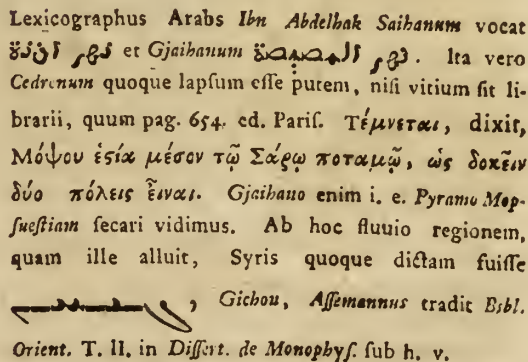 Lexicographus Arabs Ibn Abdelhak Saihanum vocat
نهر اذنة et Gjaihanum نهر المصيصة. Ita vero
Cedrenum quoque lapſum eſſe putem, niſi vitium ſit li-
brarii, quum pag. 654. ed. Pariſ. Τέμνεται, dixit,
Μόψου ἑςία μέσον τῷ Σάρῳ ποταμῷ, ὡς δοκεῖν
δύο πόλεις εἶναι. Gjaihano enim i. e. Pyramo Mop-
ſueſtiam ſecari vidimus. Ab hoc fluuio regionem,
quam ille alluit, Syris quoque dictam fuiſſe
, Gichou, Aſſemannus tradit Bibl.
Orient. T. II. in Diſſert. de Monophyſ. ſub h. v.